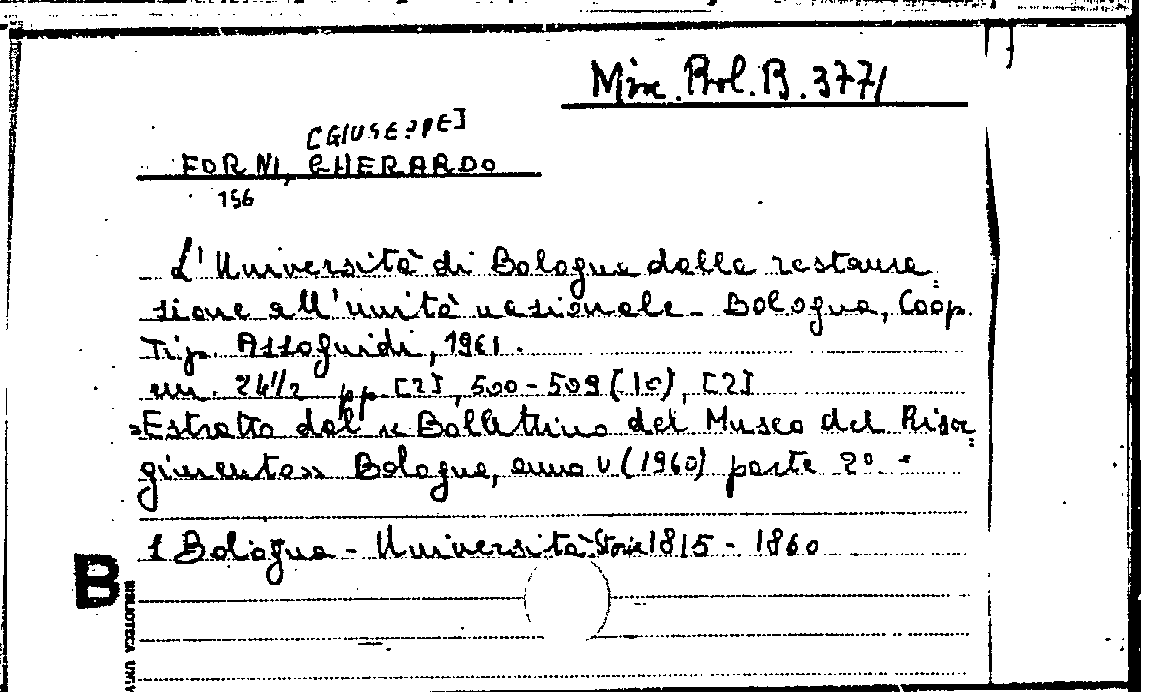 Misc. Bol. B. 377/
[GIUSEPPE]
FORNI, GHERARDO
156
L'Università di Bologna dalla restaura=
zione all'unità nazionale - Bologna, Coop.
Tip. Azzoguidi, 1961.
cm. 24 1/2 pp. [2], 500-509 (10), [2]
=Estratto dal « Bollettino del Museo del Risor=
gimento» Bologna, anno V (1960) parte 2º -
1 Bologna - Università Storia 1815 - 1860
B
BIBLIOTECA UNIV